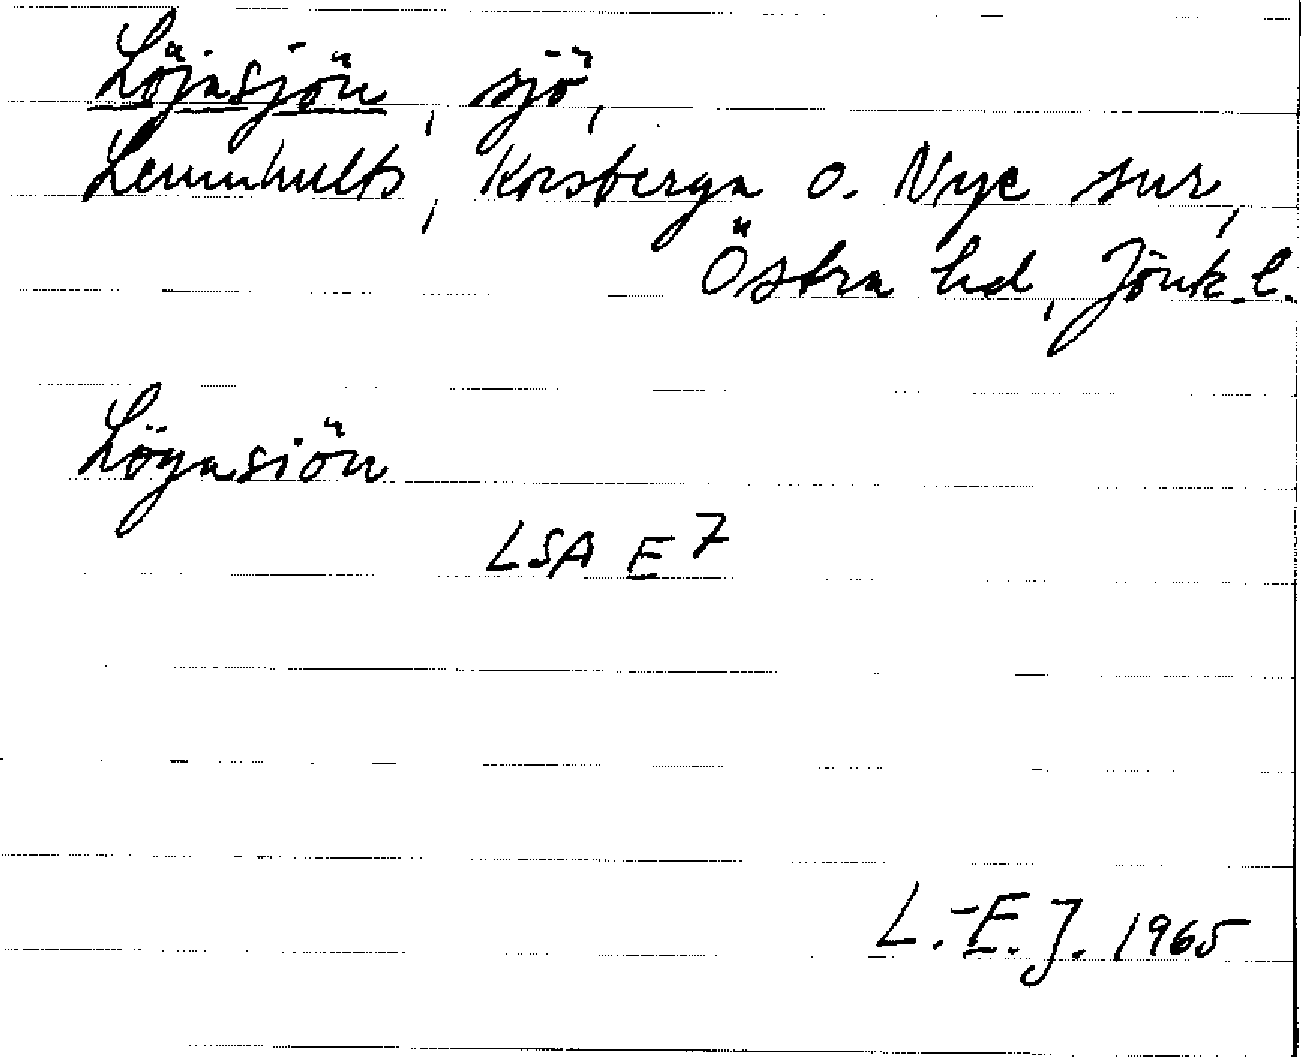 Löjasjön, sjö,
Lemnhults, Korsberga o. Nye snr,
Östra hd, Jönk. l.
Lögasiön
LSA E7
L.-E. J. 1965